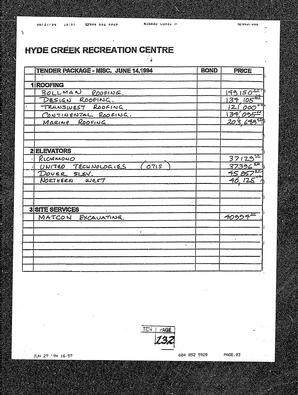 HYDE CREEK RECREATION CENTRE
TENDER PACKAGE - MISC. JUNE 14, 1994 BOND PRICE
1 ROOFING
BOLLMAN ROOFING.
DESIGN ROOFING.
TRANSWEST ROOFING 121,000
CONTINENTAL ROOFING.
MARINE ROOFING.
2 ELEVATORS
RICHMOND 37125
UNITED TECHNOLOGIES (OTIS) 37396
DOVER ELEV. 45,857
NORTHERN WEST 40,125
3 SITE SERVICES
MATCON EXCAVATING. 40954
TEN PAGE
132
JUN 27 '94 16:57 604 852 5929 PAGE.03